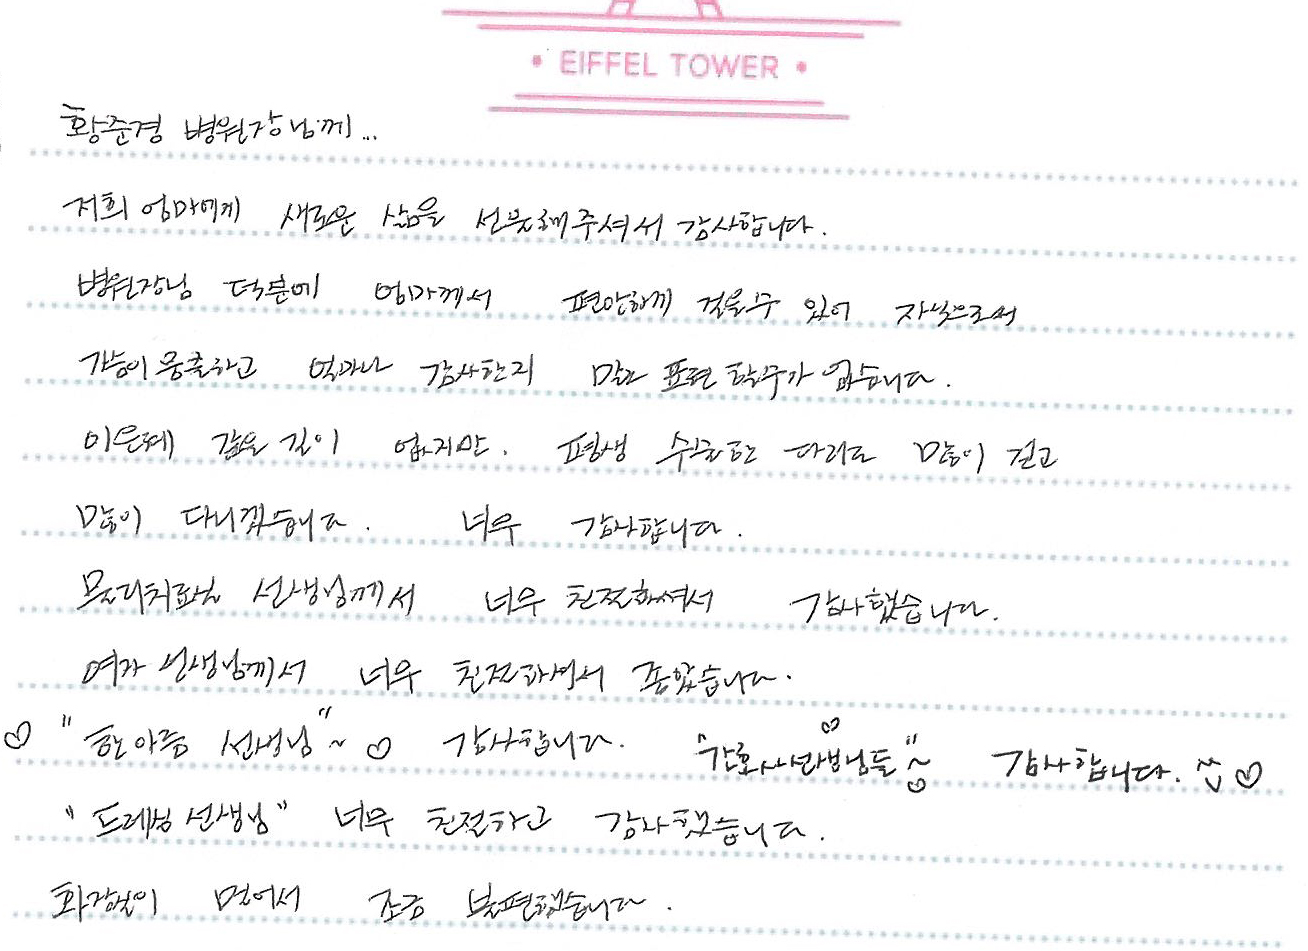 • EIFFEL TOWER •
황준경 병원장님께...
저희 엄마에게 새로운 삶을 선물해주셔서 감사합니다.
병원장님 덕분에 엄마께서 편안하게 걸을수 있어 자식으로서
가슴이 뭉클하고 얼마나 감사한지 말로 표현 할수가 없습니다.
이은혜 갚을 길이 없지만. 평생 수술한 다리로 많이 걷고
많이 다니겠습니다. 너무 감사합니다.
물리치료실 선생님께서 너무 친절하셔서 감사했습니다.
여자 선생님께서 너무 친절하셔서 좋았습니다.
♡ "한아름 선생님"~ ♡ 감사합니다. "간호사선생님들"~ ♡ 감사합니다. ♡
"드레싱 선생님" 너무 친절하고 감사했습니다.
화장실이 멀어서 조금 불편했습니다.